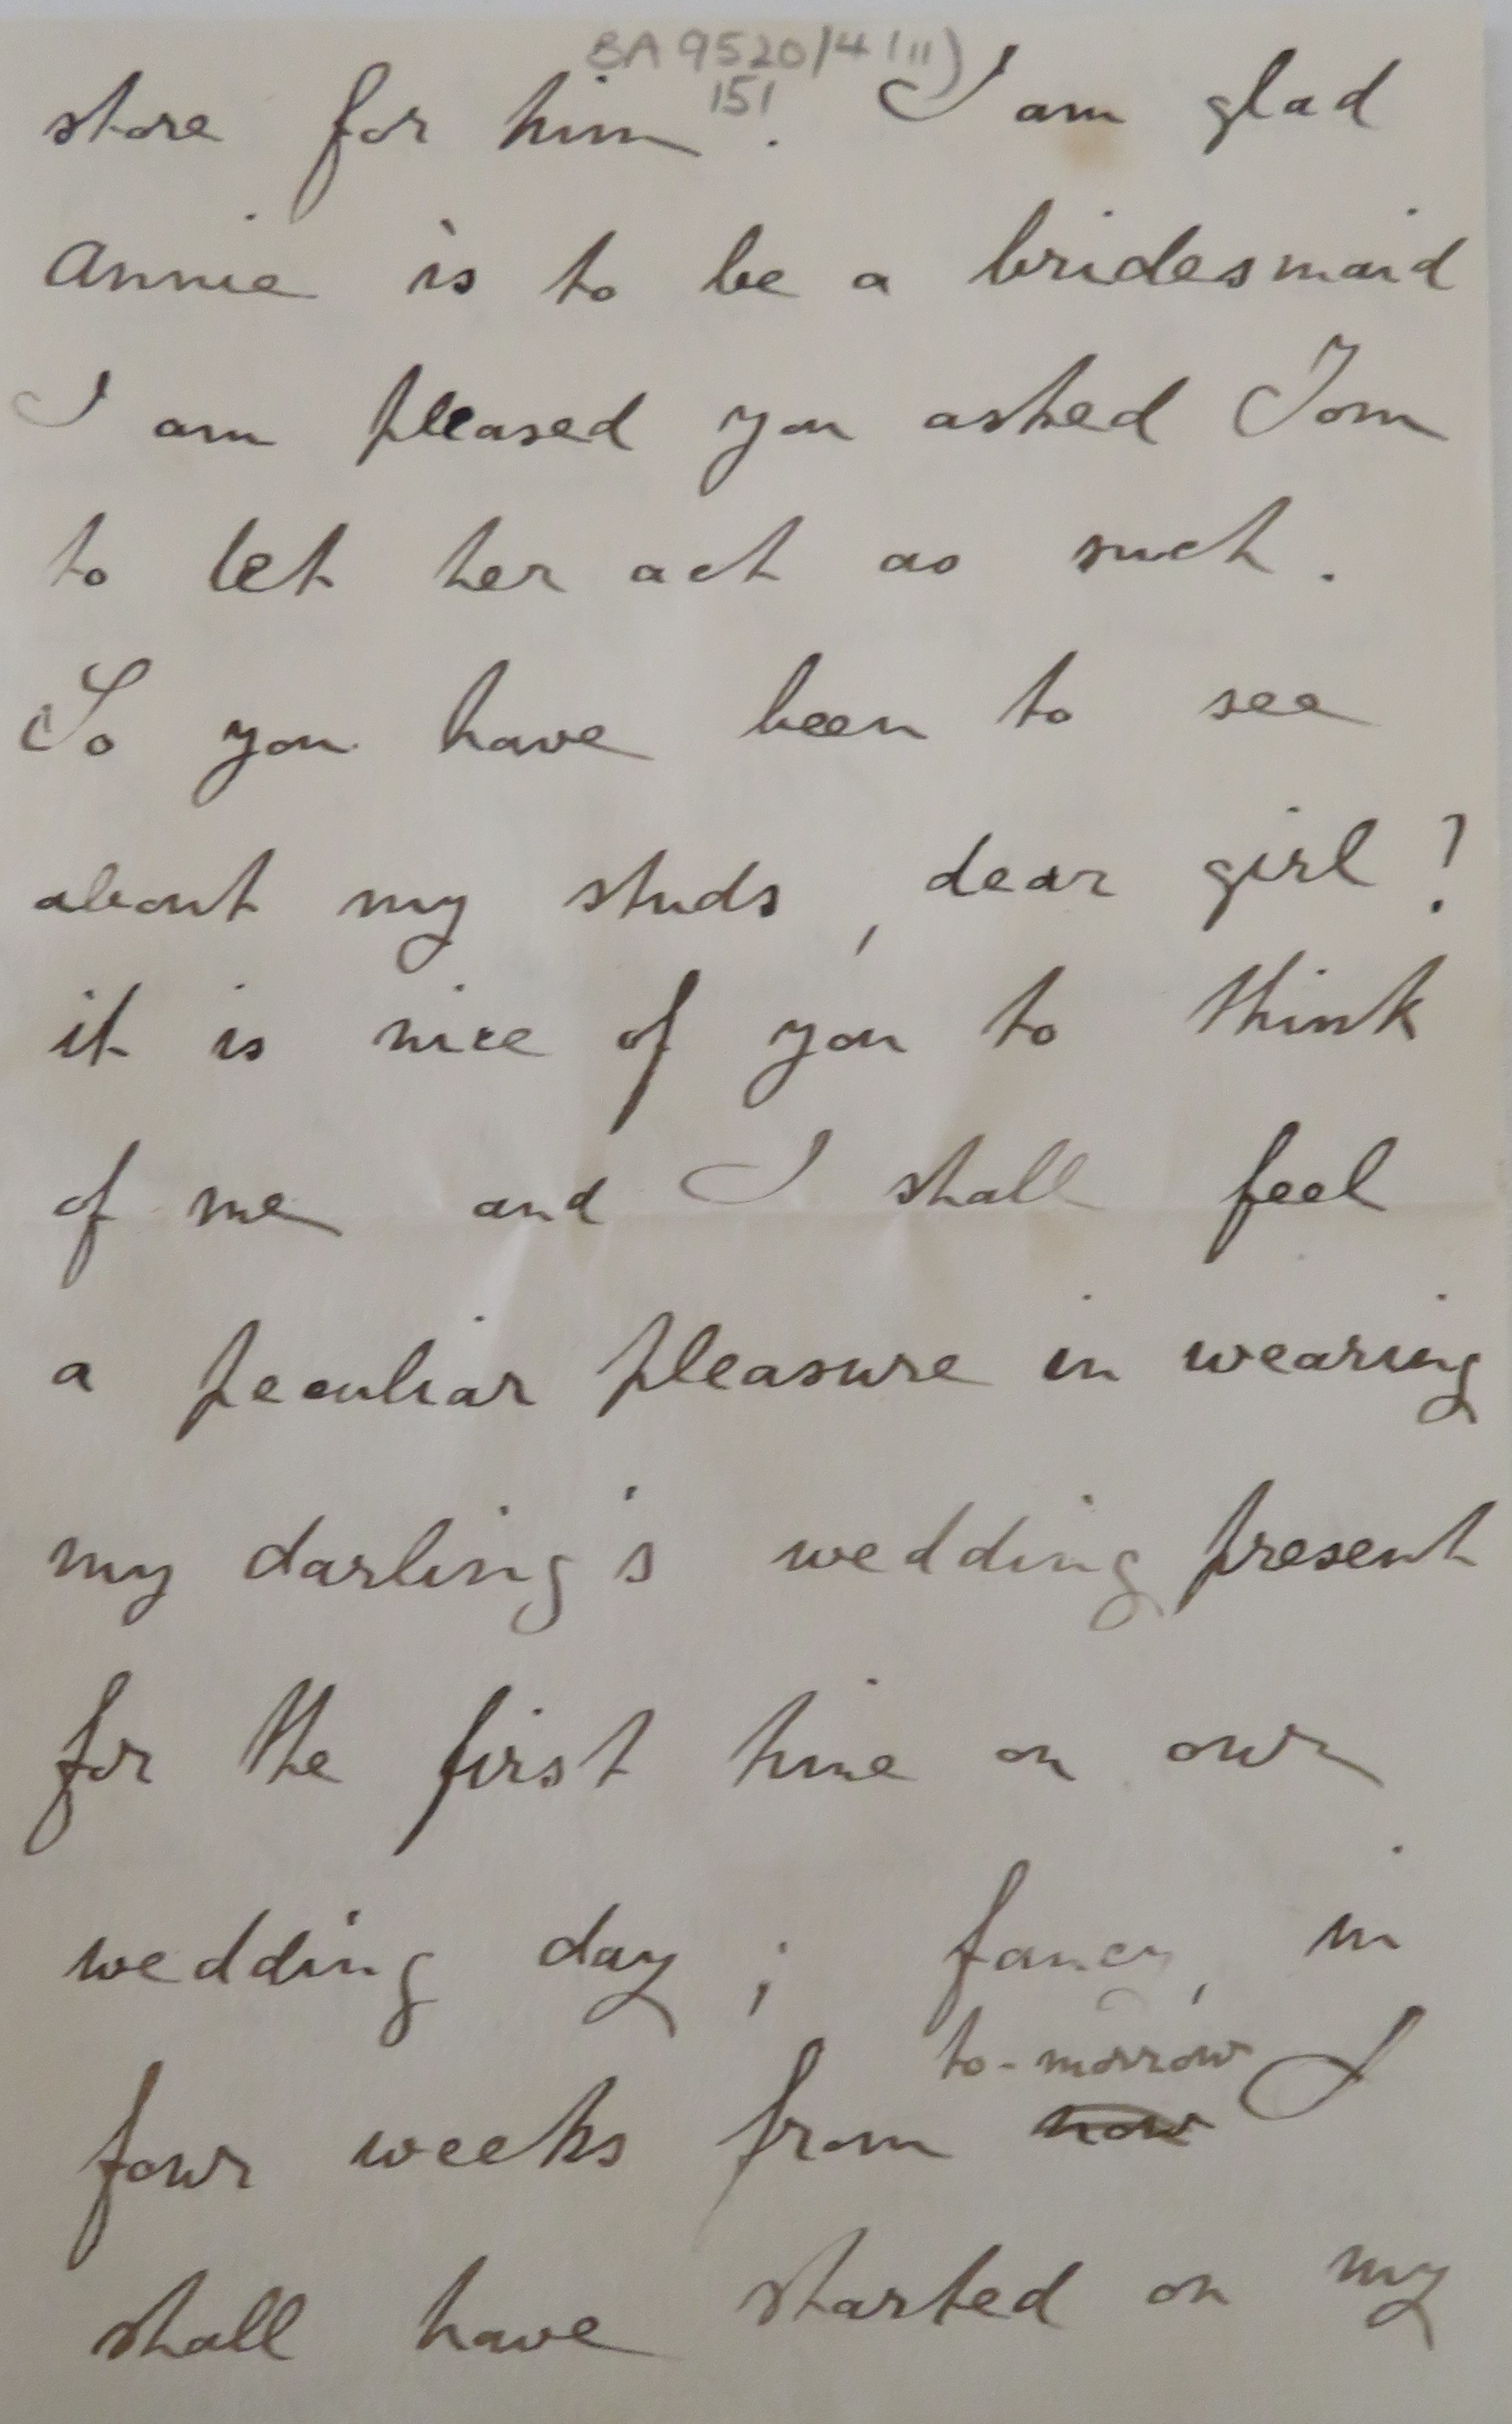 BA 9520/4 (ii)
151
store for him. I am glad
Annie is to be a bridesmaid
I am pleased you asked Tom
to let her act as such.
So you have been to see
about my studs, dear girl?
it is nice of you to think
of me and I shall feel
a peculiar pleasure in wearing
my darling's wedding present
for the first time on our
wedding day; fancy, in
to-morrow
four weeks from now I
shall have started on my